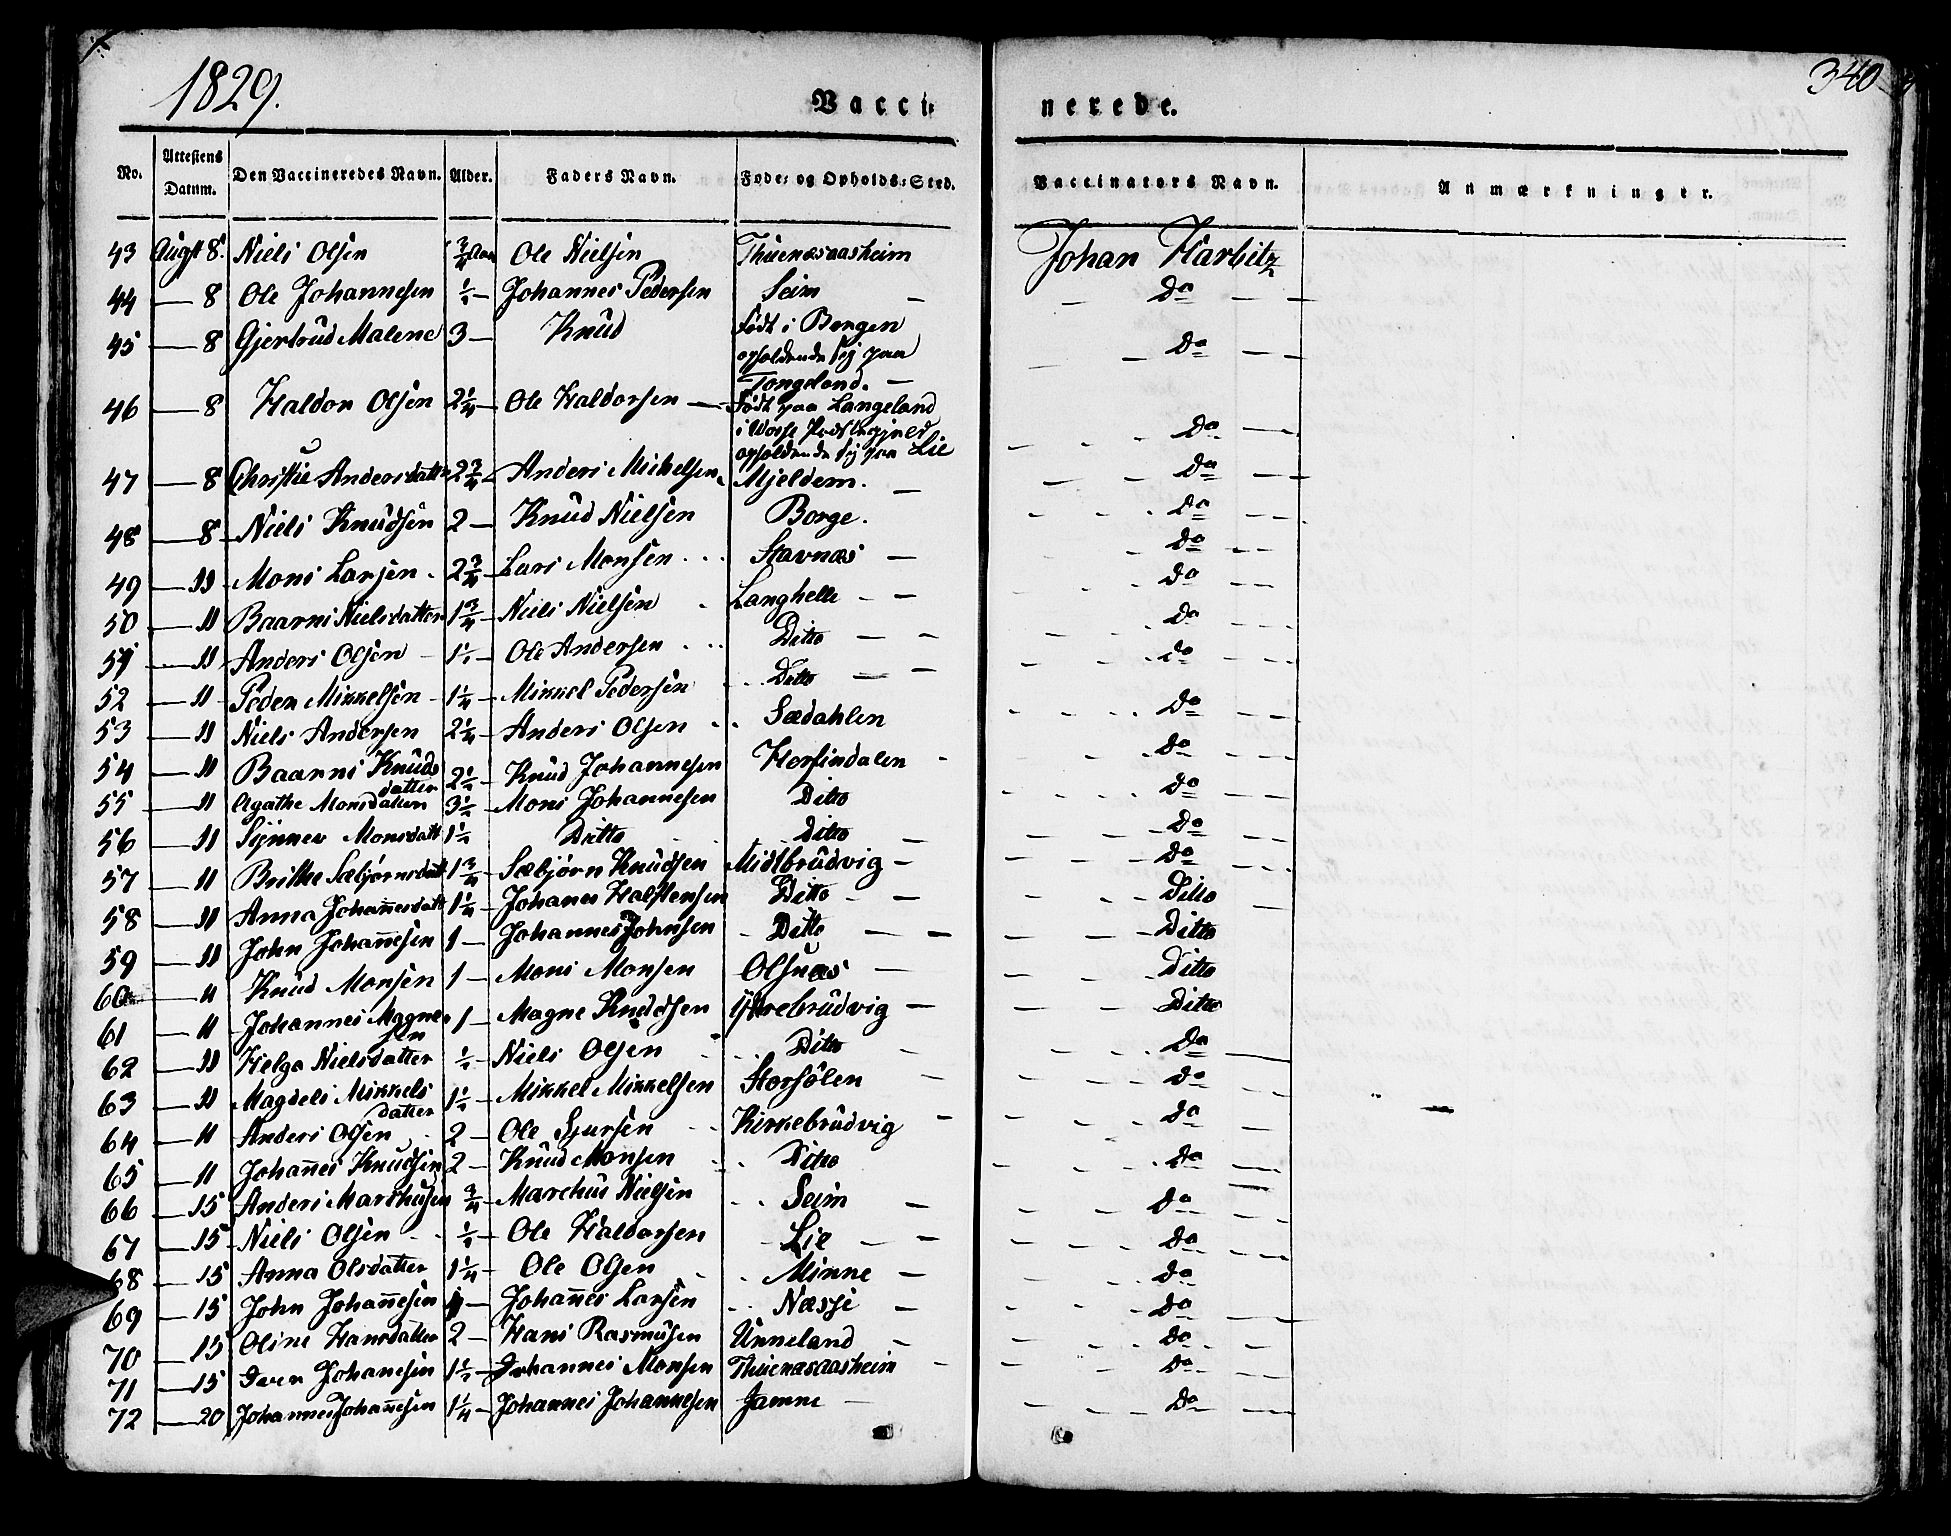 1829.
340
Vacci-
nerede.
No. Attestens Datum. Den Vaccineredes Navn. Alder. Faders Navn. Føde- og Opholds-Sted. Vaccinators Navn. Anmærkninger.
43 Augst 8. Niels Olsen 3/4 Aar Ole Nielsen Thuenæsaasheim Johan Harbitz
44 — 8 Ole Johannesen 1/2 — Johannes Pedersen Seim — Do
45 — 8 Gjertrud Malene 3 — Knud Født i Bergen
opholdende sig paa
Tongeland. — Do
46 — 8 Haldor Olsen 2 1/4 — Ole Haldorsen — Født paa Langeland
i Vosse Præstegjeld
opholdende sig paa Lie Do
47 — 8 Christie Andersdatter 2 3/4 Anders Mickelsen Mjeldem. — Do
48 — 8 Niels Knudsen 2 — Knud Nielsen Borge. Do
49 — 11 Mons Larsen 2 3/4 — Lars Monsen Stavnæs — Do
50 — 11 Baarni Nielsdatter 1 3/4 — Niels Nielsen Langhelle — Do
51 — 11 Anders Olsen 1 1/2 — Ole Andersen Ditto — Do
52 — 11 Peder Mikkelsen 1 1/4 — Mikkel Pedersen Ditto — Do
53 — 11 Niels Andersen 2 1/4 — Anders Olsen Sædahlen Do
54 — 11 Baarni Knuds
datter 2 1/2 — Knud Johannesen Horsindalen Do
55 — 11 Agathe Monsdatter 3 1/2 — Mons Johannesen Ditto Do
56 — 11 Synnev Monsdatt 1 1/2 Ditto Ditto — Do
57 — 11 Brithe Sæbjørnsdatt 1 3/4 — Sæbjørn Knudsen Midtbrudvig — Do
58 — 11 Anna Johañesdatt 1 1/4 — Johanes Halstensen Ditto — Ditto
59 — 11 John Johañesen 1 — Johannes Johnsen Ditto — Ditto
60 — 11 Knud Monsen 1 — Mons Monsen Olsnæs — Ditto
61 — 11 Johannes Magne-
sen 1 — Magne Knudsen Ytrebrudvig — Ditto
62 — 11 Helga Nielsdatter 1/2 — Niels Olsen Ditto Do
63 — 11 Magdeli Mikkels
datter 1 1/2 — Mikkel Mikkelsen Storsölen Do
64 — 11 Anders Olsen 2 — Ole Sjursen Kirkebrudvig Do
65 — 11 Johañes Knudsen 2 — Knud Monsen Ditto Do
66 — 15 Anders Marchusen 3/4 — Marchus Nielsen Seim — Do
67 — 15 Niels Olsen 1/2 — Ole Haldorsen Lie — Do
68 — 15 Anna Olsdatter 1 1/4 Ole Olsen Minne — Do
69 — 15 John Johañesen — Johañes Larsen Næsse — Do
70 — 15 Oline Hansdatter 2 — Hans Rasmusen Unneland — Do
71 — 15 Iver Johanesen 1 1/2 — Johannes Monsen Thuenæsaasheim Do
72 — 20 Johannes Johañesen 1 1/4 — Johannes Johannesen Jamne Do